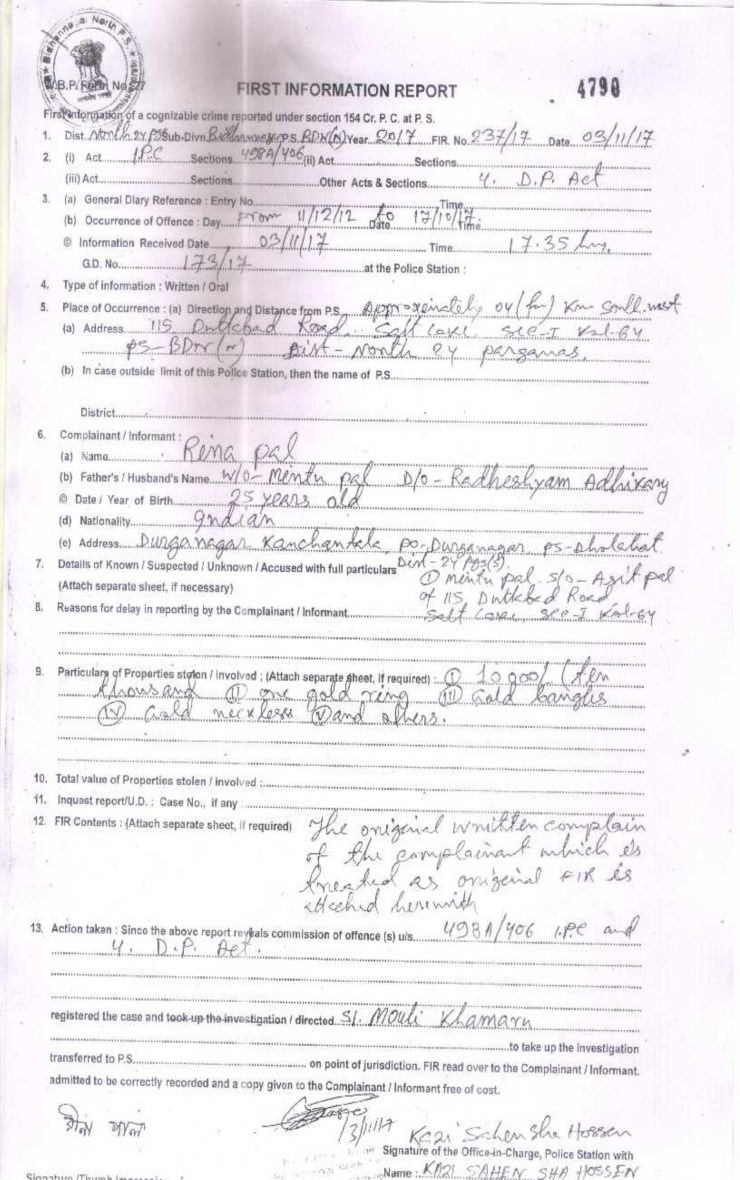 Bidhannagar North P.S.
W.B.P. Form No 27
FIRST INFORMATION REPORT
4790
First information of a cognizable crime reported under section 154 Cr. P. C. at P. S.
1. Dist. North 24 PGS Sub-Divn. Bidhannagar P.S. BDN(N) Year 2017 FIR. No. 237/17 Date 03/11/17
2. (i) Act I.P.C Sections 498A/406 (ii) Act Sections
(iii) Act Sections Other Acts & Sections 4. D.P. Act
3. (a) General Diary Reference : Entry No. Time
(b) Occurrence of Offence : Day From 11/12/12 Date to 17/10/17. Time
© Information Received Date 03/11/17 Time 17.35 hrs,
G.D. No. 173/17 at the Police Station :
4. Type of information : Written / Oral
5. Place of Occurrence : (a) Direction and Distance from P.S. Approxinately 04 Km South west
(a) Address 115, Duttabad Road. Salt Lake Sec-I Kol-64
PS-BDN(N) Dist- North 24 parganas.
(b) In case outside limit of this Police Station, then the name of P.S.
District
6. Complainant / Informant :
(a) Name Rina pal
(b) Father's / Husband's Name W/o- Mentu pal D/o - Radheshyam Adhikary
© Date / Year of Birth 25 years old
(d) Nationality Indian
(e) Address Durganagar Kanchantala, po-Durganagar, ps-Dholahat
Dist-24 pgs(s).
7. Details of Known / Suspected / Unknown / Accused with full particulars ① Mentu pal s/o- Azit pal
(Attach separate sheet, if necessary) of 115, Duttabad Road
8. Reasons for delay in reporting by the Complainant / Informant Salt Lake, Sec-I Kol-64
9. Particulars of Properties stolen / involved ; (Attach separate sheet, if required) : ① 10000/ (ten
thousand ⑪ one gold ring ⑪⑪ Gold bangles
ⓘⓥ Gold neckless ⓥ and others.
10. Total value of Properties stolen / involved :
11. Inquest report/U.D. : Case No., if any
12. FIR Contents : (Attach separate sheet, if required) The original written complain
of the complainant which is
treated as original FIR is
attached herewith
13. Action taken : Since the above report reveals commission of offence (s) u/s 498A/406 I.PC and
4. D.P. Act.
registered the case and took up the investigation / directed S.I. Mouli Khamaru
to take up the investigation
transferred to P.S. on point of jurisdiction. FIR read over to the Complainant / Informant.
admitted to be correctly recorded and a copy given to the Complainant / Informant free of cost.
রীনা পাল
3/11/17
Kazi Sahen Sha Hossen
Signature of the Office-in-Charge, Police Station with
Name : KAZI SAHEN SHA HOSSEN